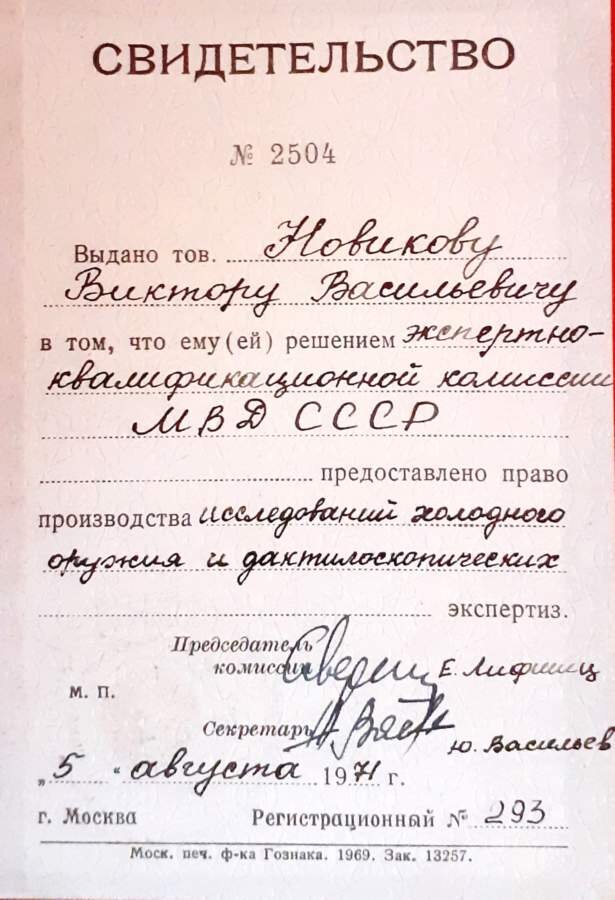 СВИДЕТЕЛЬСТВО
№ 2504
Выдано тов. Новикову
Виктору Васильевичу
в том, что ему (ей) решением экспертно-
квалификационной комиссии
МВД СССР
предоставлено право
производства исследований холодного
оружия и дактилоскопических
экспертиз.
Председатель
комиссии Е. Лифшиц
м. п.
Секретарь
Ю. Васильев
„5 “ августа 1971 г.
г. Москва Регистрационный № 293
Моск. печ. ф-ка Гознака. 1969. Зак. 13257.